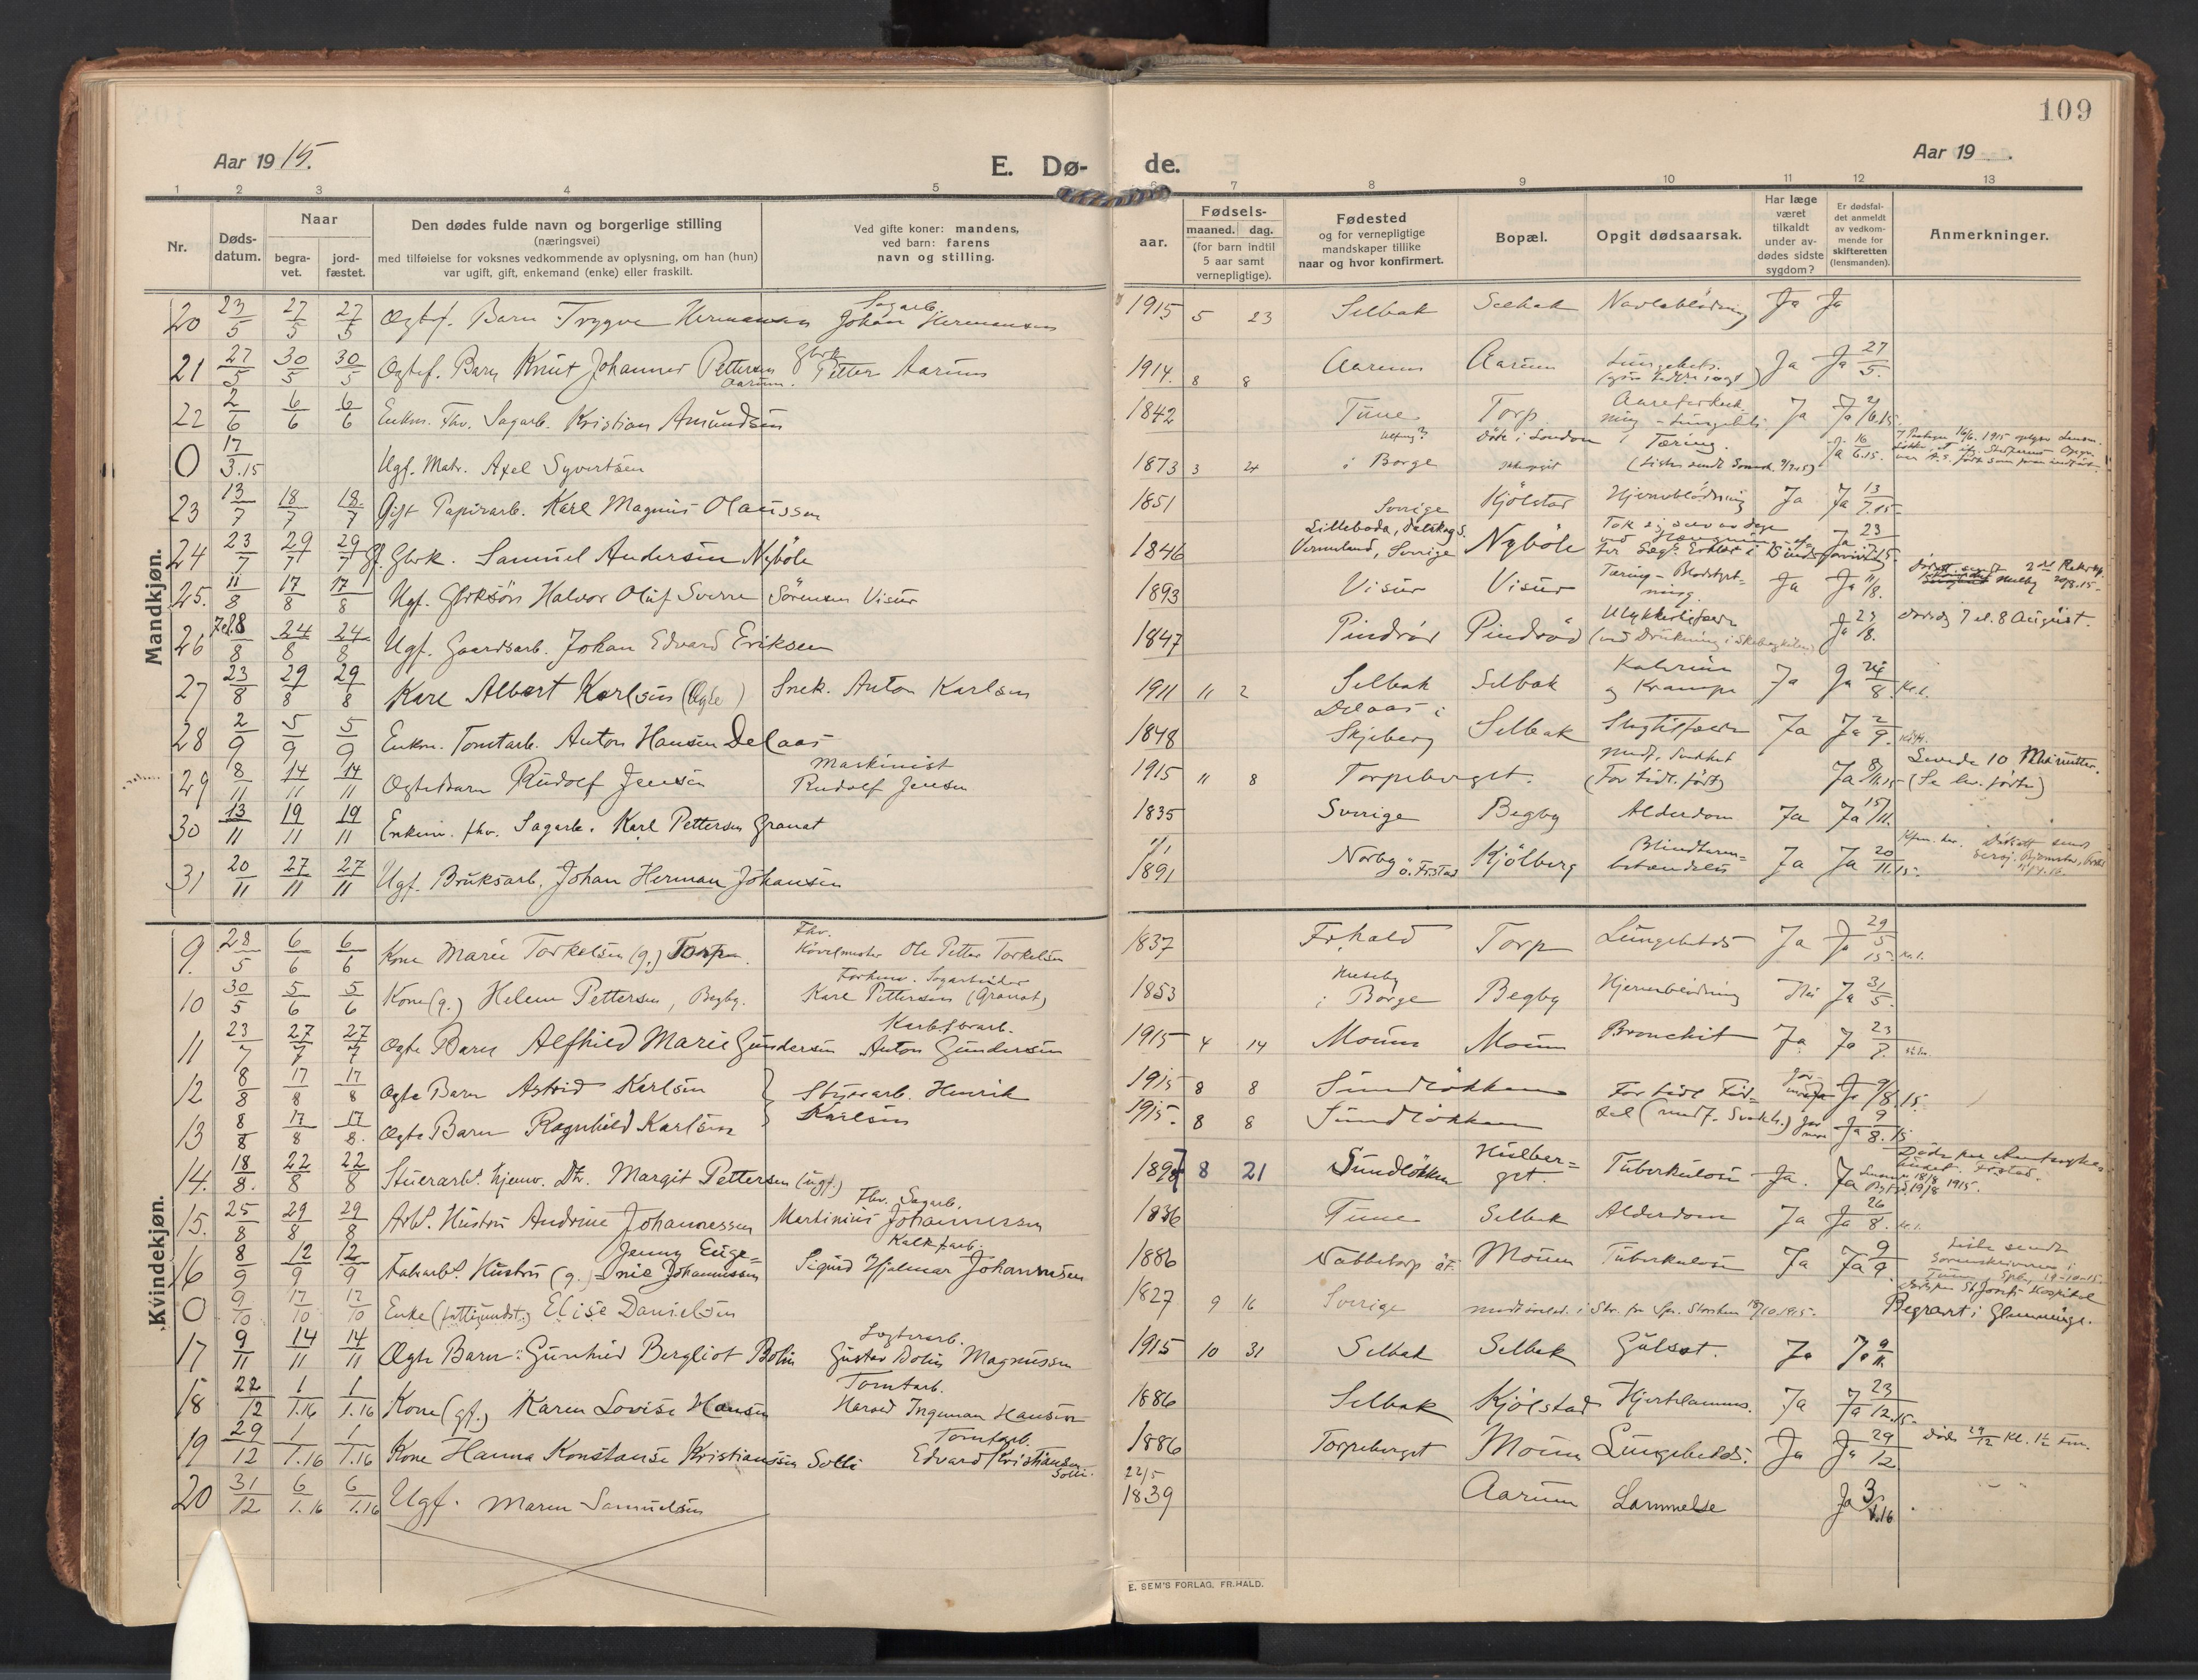 109
Aar 19 15.
E. Dø-
de.
Aar 19
1 2 3 4 5 6 7 8 9 10 11 12 13
Nr.
Døds-
datum.
Naar
begra-
vet.
jord-
fæstet.
Den dødes fulde navn og borgerlige stilling
(næringsvei)
med tilføielse for voksnes vedkommende av oplysning, om han (hun)
var ugift, gift, enkemand (enke) eller fraskilt.
Ved gifte koner: mandens,
ved barn: farens
navn og stilling.
aar.
Fødsels-
maaned. dag.
(for barn indtil
5 aar samt
vernepligtige).
Fødested
og for vernepligtige
mandskaper tillike
naar og hvor konfirmert.
Bopæl.
Opgit dødsaarsak.
Har læge
været
tilkaldt
under av-
dødes sidste
sygdom?
Er dødsfal-
det anmeldt
av vedkom-
mende for
skifteretten
(lensmanden).
Anmerkninger.
Mandkjøn.
20 23/5 27/5 27/5 Ogtef. Barn Trygve Hermansen Sagarb. Johan Hermansen 1915 5 23 Selbak Selbak Navleblödning Ja Ja
21 27/5 30/5 30/5 Ogtef. Barn Knut Johannes Pettersen Aarum. Gbrk Petter Aarum 1914. 8 8 Aarum Aarum Lungebets. Ja Ja 27/5.
22 2/6 6/6 6/6 Enkm. Fhv. Sagarb. Kristian Amundsen 1842 Tune Torp Aareforkalk-ning - Lungebets. Ja Ja 2/6.15
0 17/3.15 Ugf. Matr. Axel Syvertsen 1873 3 24 i Borge Döde i London Tæring. Ja 16/6.15.
23 13/7 18/7 18/7 Gift Papirarb. Karl Magnus Olaussen 1851 Sverige Kjölstad Hjerneblödning Ja Ja 13/7.15
24 23/7 29/7 29/7 Gf. Gbrk. Samuel Andersen Nyböle 1846 Lilleboda, Vermland, Sverige Nyböle Ja 23/7.15.
25. 11/8 17/8 17/8 Ugf. Gbrksön Halvor Oluf Sverre Sörensen Visur 1893 Visur Visur Tæring - Blodstyrt-ning. Ja Ja 11/8.
26 7 el. 8/8 24/8 24/8 Ugf. Gaardsarb. Johan Edvard Eriksen 1847 Pindröd Pindröd Ulykkestilfælde (ved Drukning i Ja 23/8. 7 el. 8 August.
27 23/8 29/8 29/8 Karl Albert Karlsen (Ogte) Snek. Anton Karlsen 1911 11 2 Selbak Selbak og Krampe Ja Ja 24/8.
28 2/9 5/9 5/9 Enkm. Tomtarb. Anton Hansen Delaas 1848 Delaas i Skjeberg Selbak Slagtilfælde Ja Ja 2/9.
29 8/11 14/11 14/11 Ogte Barn Rudolf Jensen Maskinist Rudolf Jensen 1915 11 8 Torpeberget. Medf. Svakhet (For tidl. født) Ja 8/11.15 Levede 10 Minutter. (Se lev. fødte)
30 13/11 19/11 19/11 Enkem. fhv. Sagarb. Karl Pettersen Granat 1835 Sverige Begby Alderdom Ja Ja 15/11.
31 20/11 27/11 27/11 Ugf. Bruksarb. Johan Herman Johansen 1/1 1891 Norby ö. Frstad Kjölberg Blindtarm-betændelse Ja Ja 20/11.15.
Kvindekjøn.
9. 28/5 6/6 6/6 Kone Marie Torkelsen (g.) Torp. Fhv. Ole Petter Torkelsen 1837 Fr.hald Torp Lungebetds Ja Ja 29/5 15.
10 30/5 5/6 5/6 Kone (g.) Helene Pettersen, Begby. Forhenv. Sagarbeider Karl Pettersen (Granat) 1853 i Borge Begby Hjerneblödning Nei Ja 31/5.
11 23/7 27/7 27/7 Ogte Barn Alfhild Marie Gundersen Karb.f.brarb. Anton Gundersen 1915 4 14 Moum Moum Bronchit Ja Ja 23/8.
12 8/8 17/8 17/8 Ogte Barn Astrid Karlsen Stuerarb. Henrik Karlsen 1915 8 8 Sundlökken For tidl. Föd- Ja 9/8.15.
13 8/8 17/8 17/8. Ogte Barn Ragnhild Karlsen 1915. 8 8 Sundlökken sel (medf. Svakh.) Ja 9/8.15
14. 18/8. 22/8 22/8 Stuerarb.s hjemv. Dtr. Margit Pettersen (ugf.) 1897 8 21 Sundlökken Hulber=get. Tuberkulose Ja. Ja
15. 25/8 29/8 29/8 Arb.s Hustru Andrine Johannessen Fhv. Sagarb. Martinius Johannessen 1836 Tune Selbak Alderdom Ja Ja 26/8.
16 8/9 12/9 12/9 Fabrarb.s Hustru (g.) Jenny Euge=nie Johannessen Kalkf.arb. Sigurd Hjalmar Johannesen 1886 Nabbetorp Moum Tuberkulose Ja Ja 9/9.
0 9/10 17/10 17/10 Enke (fattigundst.) Elise Danielsen 1827 9 16 Sverige St Josefs Hospital Begravt i Glemminge.
17 9/11 14/11 14/11 Ogte Barn: Gunhild Bergliot Bolin Gustav Bolin Magnussen 1915 10 31 Selbak Selbak Gulsot. Ja Ja 9/11.
18 22/12 1/1.16 1/1.16 Kone (gf.) Karen Lovise Hansen Tomtarb. Harald Ingeman Hansen 1886 Selbak Kjölstad Hjertelammn. Ja Ja 23/12.15.
19 29/12 1/1.16 1/1.16 Kone Hanna Konstanse Kristiansen Solli Tomtarb. Edvard Kristiansen Solli. 1886 Torpeberget Moum Lungebetds. Ja Ja 29/12 Döde 29/12 Kl. 1½ Fm.
20 31/12 6/1.16 6/1.16 Ugf. Maren Samuelsen 22/5 1839 Aarum Lammelse Ja 3/1.16
E. SEM'S FORLAG, FR.HALD.